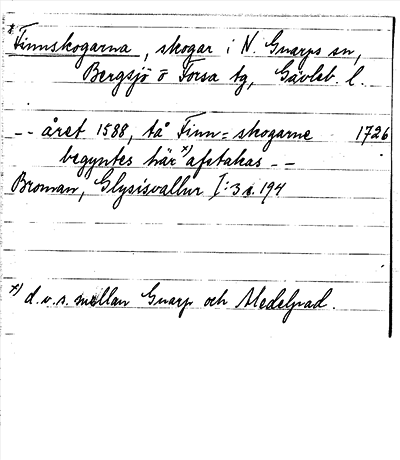 *Finnskogarna, skogar i N. Gnarps sn,
Bergsjö o Forsa tg, Gävleb. l.
-- året 1588, tå Finn=skogarne 1726
begyntes här x) afstakas --
Broman, Glysisvallur I:3 s. 194
x) d.v.s. mellan Gnarp och Medelpad.